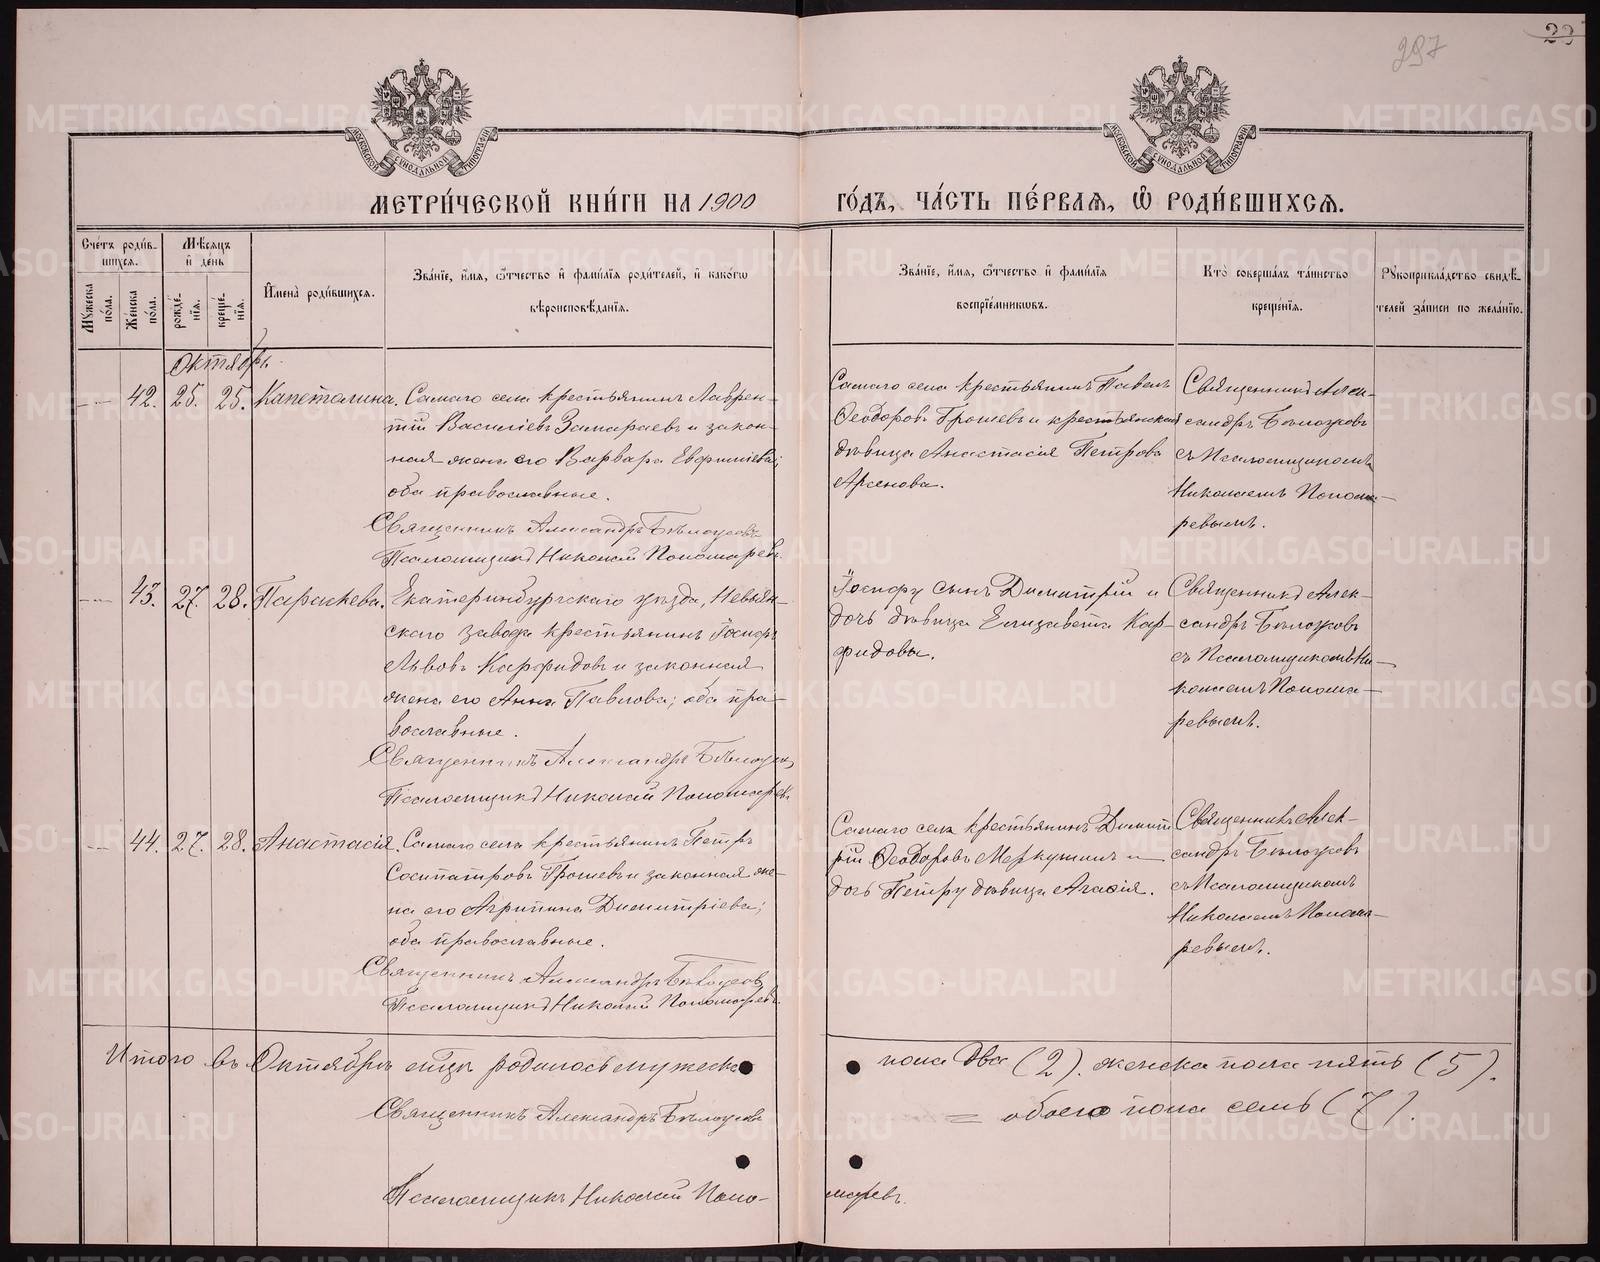 297
МЕТРИ́ЧЕСКОЙ КНИ́ГИ НА 1900 ГО́ДЪ, ЧА́СТЬ ПЕ́РВАѦ, Ѽ РОДИ́ВШИХСѦ.
МОСКОВСКОЙ СѴНОДАЛЬНОЙ ТИПОГРАФІИ
МОСКОВСКОЙ СѴНОДАЛЬНОЙ ТИПОГРАФІИ
Сче́тъ роди́вшихсѧ.
Мꙋ́жеска по́ла.
Же́нска по́ла.
Мѣ́сѧцъ и҆ де́нь
рожде́нїѧ.
креще́нїѧ.
И҆мена̀ роди́вшихсѧ.
Зва́нїе, и҆́мѧ, ѻ҆́тчество и҆ фами́лїѧ роди́телей, и҆ како́гѡ
вѣроисповѣ́данїѧ.
Зва́нїе, и҆́мѧ, ѻ҆́тчество и҆ фами́лїѧ
воспрїе́мникѡвъ.
Кто̀ соверша́лъ та́инство
креще́нїѧ.
Рꙋкоприкла́дство свидѣ́-
телей за́писи по жела́нїю.
Октябрь.
42. 25. 25. Капетолина. Самаго села крестьянинъ Лаврен-
тій Василіевъ Замараевъ и закон-
ная жена его Варвара Евфиміева;
оба православные.
Священникъ Александръ Бѣлоусовъ
Псаломщикъ Николай Пономаревъ.
Самаго села крестьянинъ Павелъ
Ѳеодоровъ Грошевъ и крестьянская
дѣвица Анастасія Петрова
Арсенова.
Священникъ Алек-
сандръ Бѣлоусовъ
съ Псаломщикомъ
Николаемъ Понома-
ревымъ.
43. 27. 28. Параскева. Екатеринбургскаго уѣзда, Невьян-
скаго завода крестьянинъ Іосифъ
Львовъ Карфидовъ и законная
жена его Анна Павлова; оба пра-
вославные.
Священникъ Александръ Бѣлоусовъ
Псаломщикъ Николай Пономаревъ.
Іосифу сынъ Димитрій и
дочь дѣвица Елизавета Кар-
фидовы.
Священникъ Алек-
сандръ Бѣлоусовъ
съ Псаломщикомъ Ни-
колаемъ Понома-
ревымъ.
44. 27. 28. Анастасія. Самаго села крестьянинъ Петръ
Сосипатровъ Грошевъ и законная же-
на его Агрипина Димитріева;
оба православные.
Священникъ Александръ Бѣлоусовъ
Псаломщикъ Николай Пономаревъ.
Самаго села крестьянинъ Димит-
рій Ѳеодоровъ Меркушинъ и
дочь Петру дѣвица Агафія.
Священникъ Алек-
сандръ Бѣлоусовъ
съ Псаломщикомъ
Николаемъ Понома-
ревымъ.
Итого въ Октябрѣ мѣцѣ родилось мужеска пола два (2). женска пола пять (5).
= обоего пола семь (7).
Священникъ Александръ Бѣлоусовъ
Псаломщикъ Николай Поно-
маревъ.
METRIKI.GASO-URAL.RU